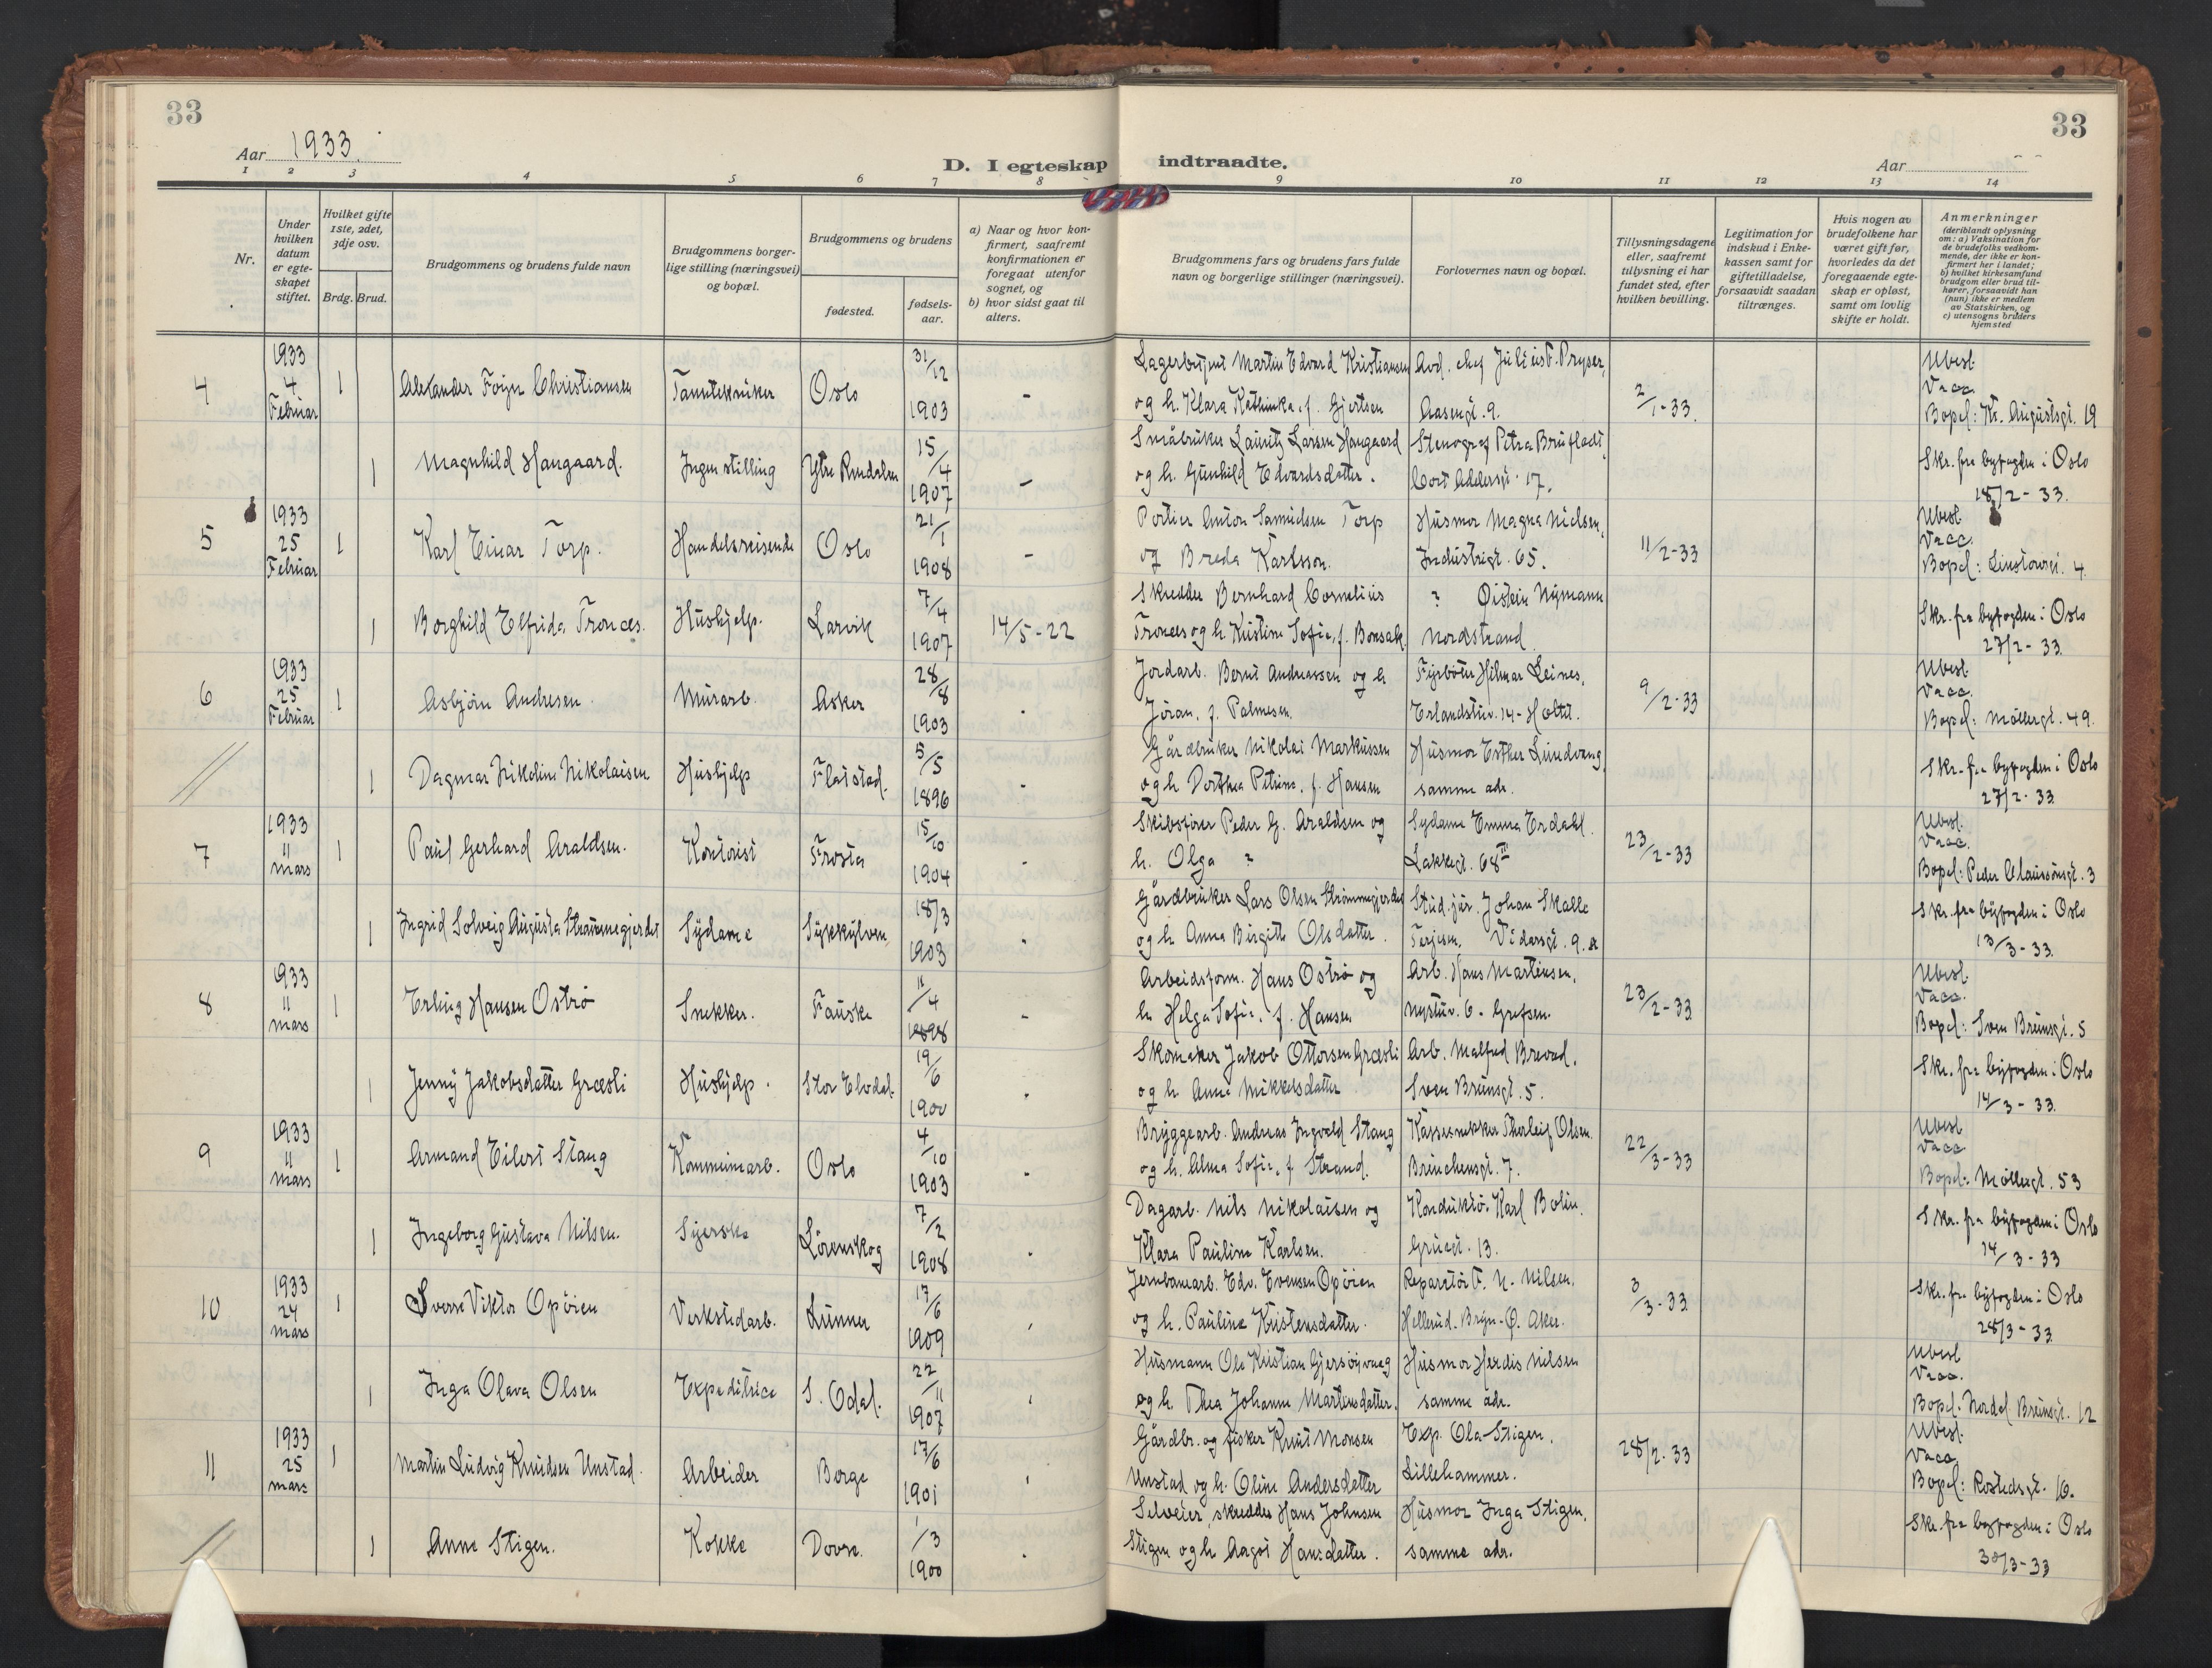 33
33
Aar 1933.
D. I egteskap indtraadte.
Aar
1 2 3 4 5 6 7 8 9 10 11 12 13 14
Nr.
Under hvilken datum er egteskapet stiftet.
Hvilket gifte 1ste, 2det, 3dje osv.
Brdg. Brud.
Brudgommens og brudens fulde navn
Brudgommens borgerlige stilling (næringsvei) og bopæl.
Brudgommens og brudens
fødested.
fødselsaar.
a) Naar og hvor konfirmert, saafremt konfirmationen er foregaat utenfor sognet, og
b) hvor sidst gaat til alters.
Brudgommens fars og brudens fars fulde navn og borgerlige stillinger (næringsvei).
Forlovernes navn og bopæl.
Tillysningsdagene eller, saafremt tillysning ei har fundet sted, efter hvilken bevilling.
Legitimation for indskud i Enkekassen samt for giftetilladelse, forsaavidt saadan tiltrænges.
Hvis nogen av brudefolkene har været gift før, hvorledes da det foregaaende egteskap er opløst, samt om lovlig skifte er holdt.
Anmerkninger (deriblandt oplysning om: a) Vaksination for de brudefolks vedkommende, der ikke er konfirmert her i landet; b) hvilket kirkesamfund brudgom eller brud tilhører, forsaavidt han (hun) ikke er medlem av Statskirken, og c) utensogns bruders hjemsted
4 1933 4 Februar 1 Alexander Föyn Christiansen Tanntekniker Oslo 31/12 1903 - Lagerbetjent Martin Edvard Kristiansen og h. Klara Kathinka, f. Gjertsen Avd. chef Julius F. Pryser, Aasengt. 9. 2/1-33. Ubesl. Vacc. Bopel: Kr. Augustsgt. 19
1 Magnhild Haugaard. Ingen stilling Ytre Rendalen 15/4 1907 - Småbruker Lauritz Larsen Haugaard og h. Gunhild Edvardsdatter. Stenograf Petra Brufladt, Cort Adelersgt. 17. Skr. fra byfogden i Oslo 18/2-33.
5 1933 25 Februar 1 Karl Einar Torp. Handelsreisende Oslo 21/1 1908 - Portier Anton Samuelsen Torp og Breda Karlsson. Husmor Magna Nielsen, Industrigt. 65. 11/2-33 Ubesl. Vacc. Bopel: Linstowsgt. 4.
1 Borghild Elfrida Tronees. Hushjelp. Larvik 7/4 1907 14/5-22 Skredder Bernhard Cornelius Tronees og h. Kristine Sofie, f. Bonsak. ? Øistein Nymann Nordstrand. Skr. fra byfogden i Oslo 27/2-33.
6 1933 25 Februar 1 Asbjörn Andresen. Murarb. Asker 28/8 1903 - Jordarb. Bernt Andreassen og h. Jöran, f. Palmesen. Fyrböter Hilmar Leines, Erlandstuv. 14 - Holtet. 9/2-33 Ubesl. Vacc. Bopel: Möllergt. 49.
1 Dagmar Nikoline Nikolaisen Hushjelp Flatstad. 5/5 1896 - Gårdbruker Nikolai Markussen og h. Dorthea Petrine, f. Hansen Husmor Esther Lundvang, samme adr. Skr. fra byfogden i Oslo 27/2-33.
7 1933 11 mars 1 Paul Gerhard Araldsen. Kontorist Frosta 15/10 1904 - Skibsförer Peder G. Araldsen og h. Olga ? Sydame Emma Erdahl. Lakkegt. 68 II 23/2-33 Ubesl. Vacc. Bopel: Peder Claussönsgt. 3
1 Ingrid Solveig Augusta Strömmegjerdet Sydame Sykkylven 18/3 1903 - Gårdbruker Lars Olsen Strömmegjerdet og h. Anna Birgitte Olsdatter. Stud. jur. Johan Skalle Terjesen, Vidarsgt. 9. A Skr. fra byfogden i Oslo 13/3-33.
8 1933 11 mars 1 Erling Hansen Oströ Snekker. Fauske 11/4 1898 - Arbeidsform. Hans Oströ og h. Helga Sofie, f. Hansen Arb. Hans Martinsen, Nystuv. 6 - Grefsen. 23/2-33 Ubesl. Vacc. Bopel: Sven Brunsgt. 5
1 Jenny Jakobsdatter Græsli Hushjelp. Stor Elvdal. 19/6 1900 - Skomaker Jakob Ottersen Græsli og h. Anne Mikkelsdatter Arb. Malfred Brevad. Sven Brunsgt. 5. Skr. fra byfogden i Oslo 14/3-33.
9 1933 11 mars 1 Armand Eilert Stang Kommunearb. Oslo 4/10 1903 - Bryggearb. Andreas Ingvald Stang og h. Alma Sofie, f. Strand. Kassesnekker Thorleif Olsen. Brinchensgt. 7. 22/3-33 Ubesl. Vacc. Bopel: Möllergt. 53
1 Ingeborg Gustava Nilsen. Syerske Lörenskog 7/2 1908 - Dagarb. Nils Nikolaisen og Klara Pauline Karlsen. Konduktör Karl Bolin. Grüegt. 13. Skr. fra byfogden i Oslo 14/3-33
10 1933 24 mars 1 Sverre Viktor Opöien Verkstedarb. Lunner 17/6 1909 - Jernbanearb. Edv. Evensen Opöien og h. Pauline Kristensdatter. Reparatör F. N. Nilsen. Hellerud. Bryn - Ø. Aker. 3/3-33. Skr. fra byfogden i Oslo 28/3-33.
1 Inga Olava Olsen Expeditrice S. Odal. 22/11 1907 - Husmann Ole Kristian Gjersöyvaag og h. Thea Johanne Martinsdatter. Husmor Herdis Nilsen samme adr. Ubesl. Vacc. Bopel. Nordal Brunsgt. 12
11 1933 25 mars 1 Martin Ludvig Knudsen Unstad. Arbeider Borge 17/6 1901 - Gårdbr. og fisker Knut Monsen Unstad og h. Oline Andersdatter Exp. Ola Stigen. Lillehammer. 28/2-33 Ubesl. Vacc. Bopel: Rostedsgt. 16.
1 Anne Stigen. Kokke Dovre. 1/3 1900 - Selveier, skredder Hans Johnsen Stigen og h. Aagot Hansdatter. Husmor Inga Stigen, samme adr. Skr. fra byfogden i Oslo 30/3-33